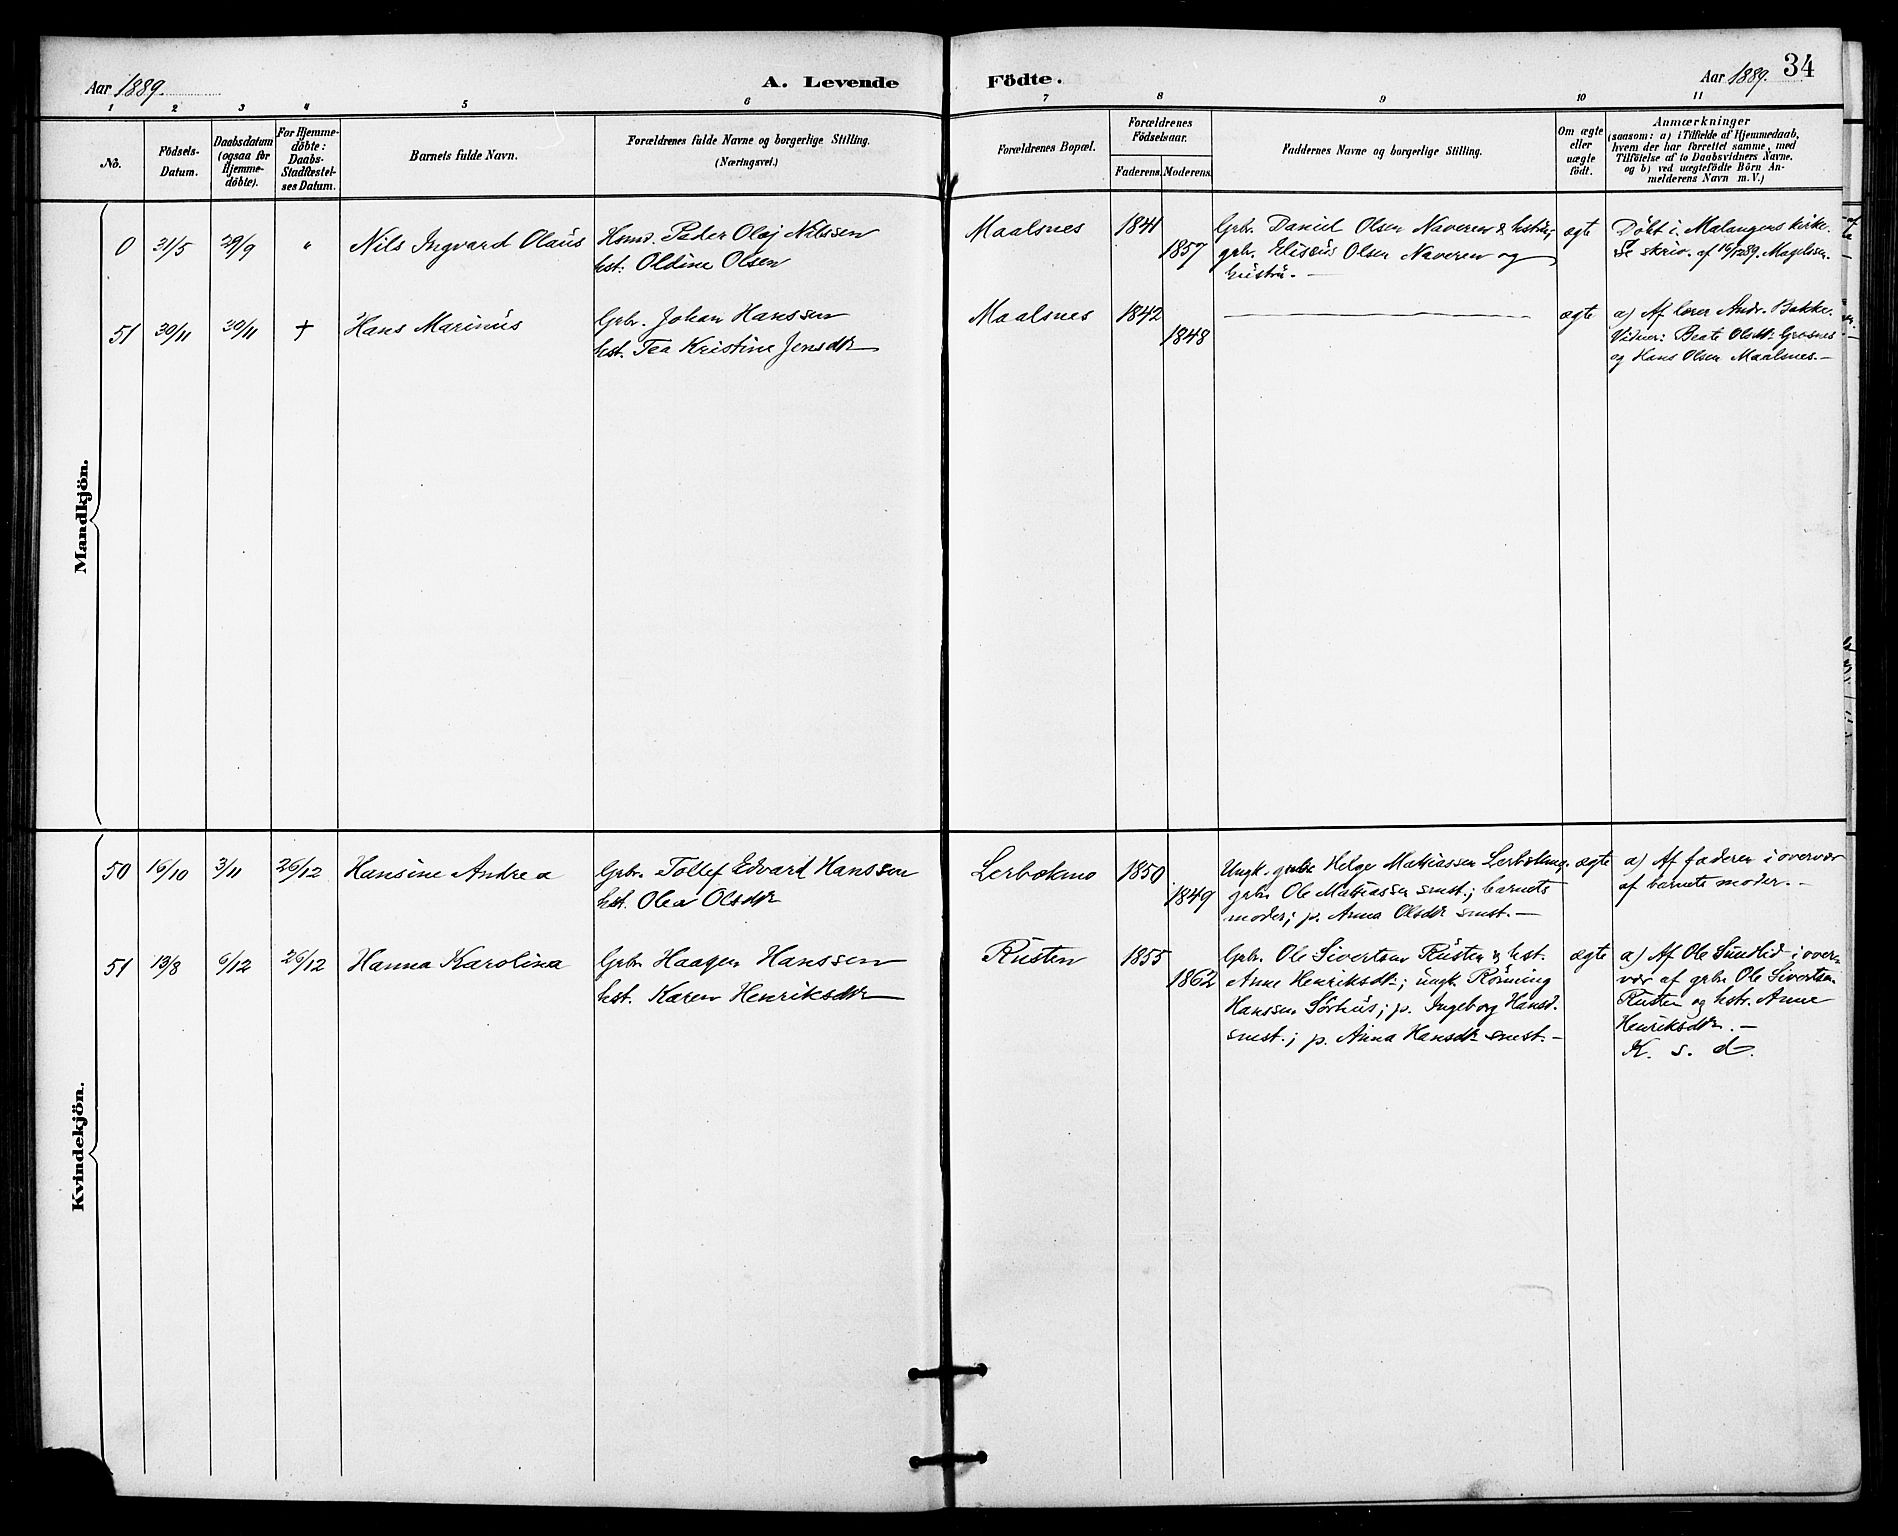 Aar 1889.
A. Levende
Födte.
Aar 1889.
34
1 2 3 4 5 6 7 8 9 10 11
No.
Födsels-
Datum.
Daabsdatum
(ogsaa för
Hjemme-
döbte).
For Hjemme-
döbte:
Daabs-
Stadfæstel-
ses Datum.
Barnets fulde Navn.
Forældrenes fulde Navne og borgerlige Stilling.
(Næringsvei.)
Forældrenes Bopæl.
Forældrenes
Födselsaar.
Faderens. Moderens.
Faddernes Navne og borgerlige Stilling.
Om ægte
eller
uægte
födt.
Anmærkninger
(saasom: a) i Tilfælde af Hjemmedaab,
hvem der har forrettet samme, med
Tilföielse af to Daabsvidners Navne.
og b) ved uægtefödte Börn An-
melderens Navn m. V.)
Mandkjön.
0 31/5 29/9 " Nils Ingvard Olaus
Hmd. Peder Olaj Nilssen
hst. Oldine Olsen
Maalsnes 1841
1857
Grbr. Daniel Olsen Naveren & hstru,
grbr. Eliseus Olsen Naveren og
hustru. —
ægte
Döbt i Malangens kirke.
Se skriv. af 16/12 89. Magelssen.
51 30/11 30/11 + Hans Marinus
Grbr. Johan Hanssen
hst. Tea Kristine Jensdtr
Maalsnes 1842
1848
ægte
a) Af lærer Andr. Bakke.
Vidner: Beate Olsdtr Grasnes
og Hans Olsen Maalsnes. —
Kvindekjön.
50 16/10 3/11 26/12 Hansine Andrea
Grbr. Tollef Edvard Hanssen
hst. Olea Olsdtr
Lerbakmo 1850
1849
Ungk. grbr Helge Mathiassen
grbr. Ole Mathiassen smst.; barnets
moder; p. Anna Olsdtr smst. —
ægte
a) Af faderen i overvær
af barnets moder. —
51 13/8 6/12 26/12 Hanna Karolina
Grbr Haagen Hanssen
hst. Karen Henriksdtr
Rusten 1855
1862
Grbr. Ole Sivertsen Rusten & hst.
Anne Henriksdtr; ungk. Rönning
Hanssen Sörhus; p. Ingeborg Hansd.
smst.; p. Anna Hansdtr smst. —
ægte
a) Af Ole Sundlid i over-
vær af grbr Ole Sivertsen
Rusten og hstr. Anne
Henriksdtr. —
K. s. d.